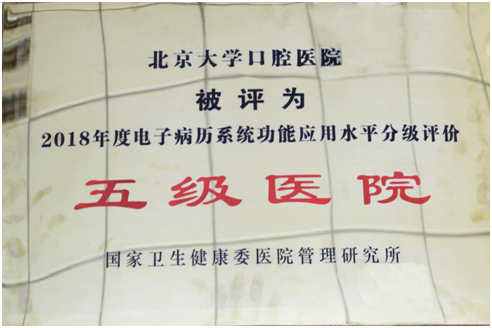 北京大学口腔医院
被评为
2018年度电子病历系统功能应用水平分级评价
五级医院
国家卫生健康委医院管理研究所